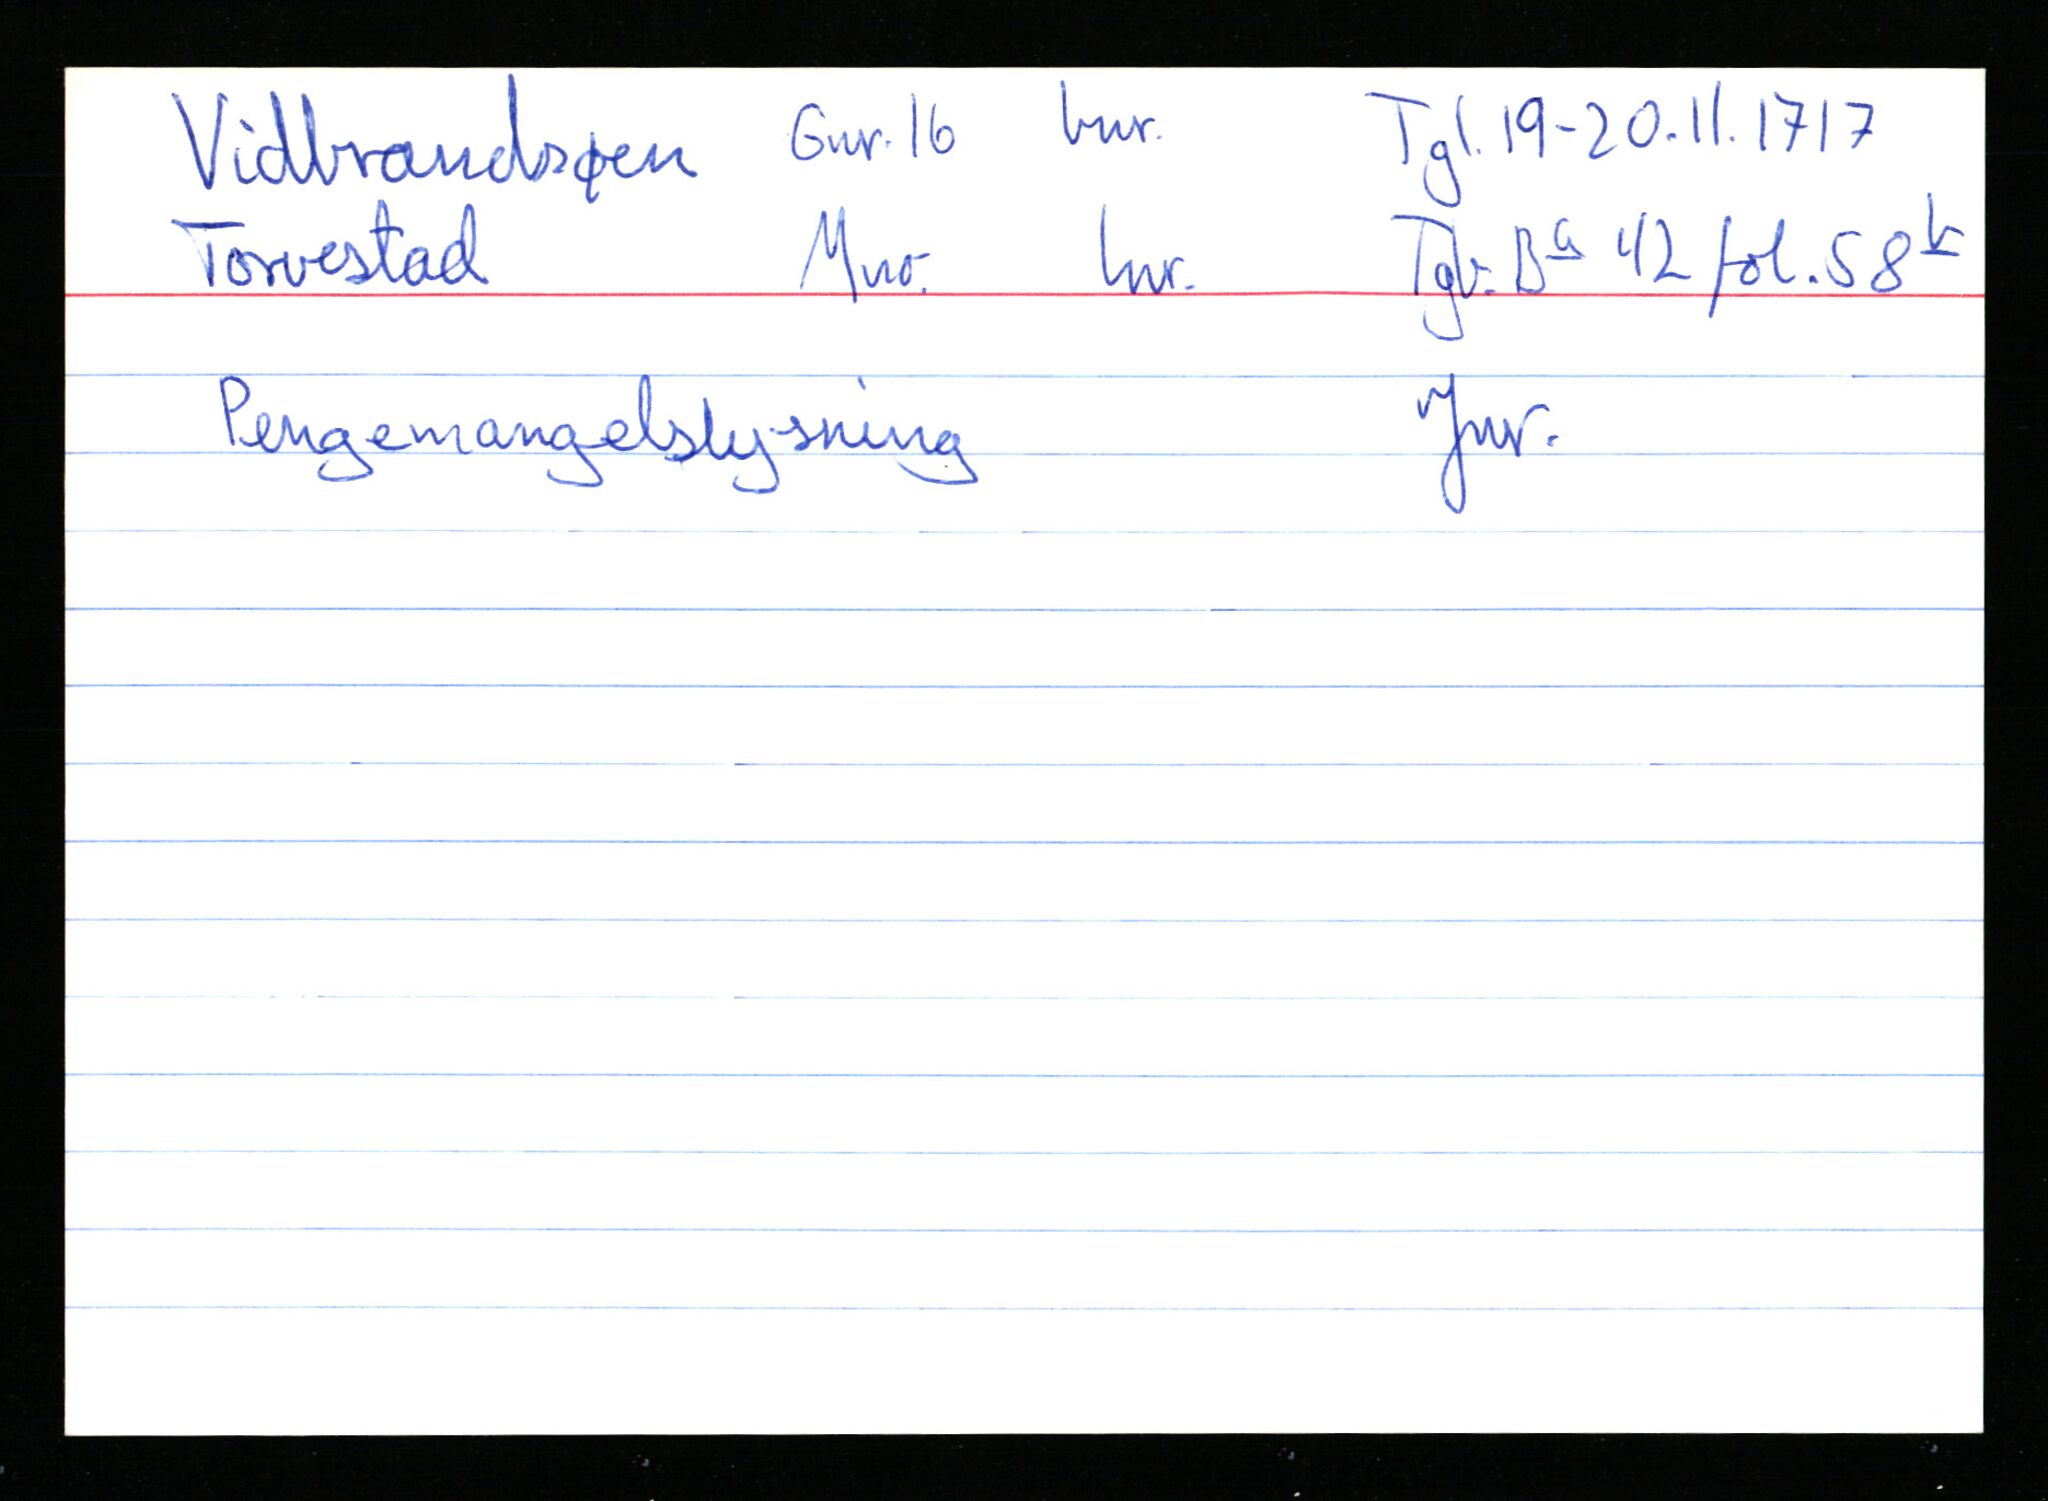 Vidbrandsøen Gnr. 16 bnr. Tgl. 19-20.11.1717
Torvestad Mno. lnr. Tgb. Ba 42 fol. 58b
Pengemangelslysning Jnr.